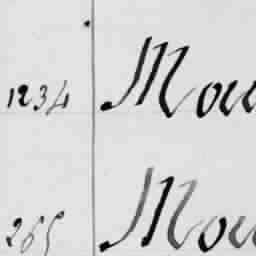 1234 Mou
265 Mou